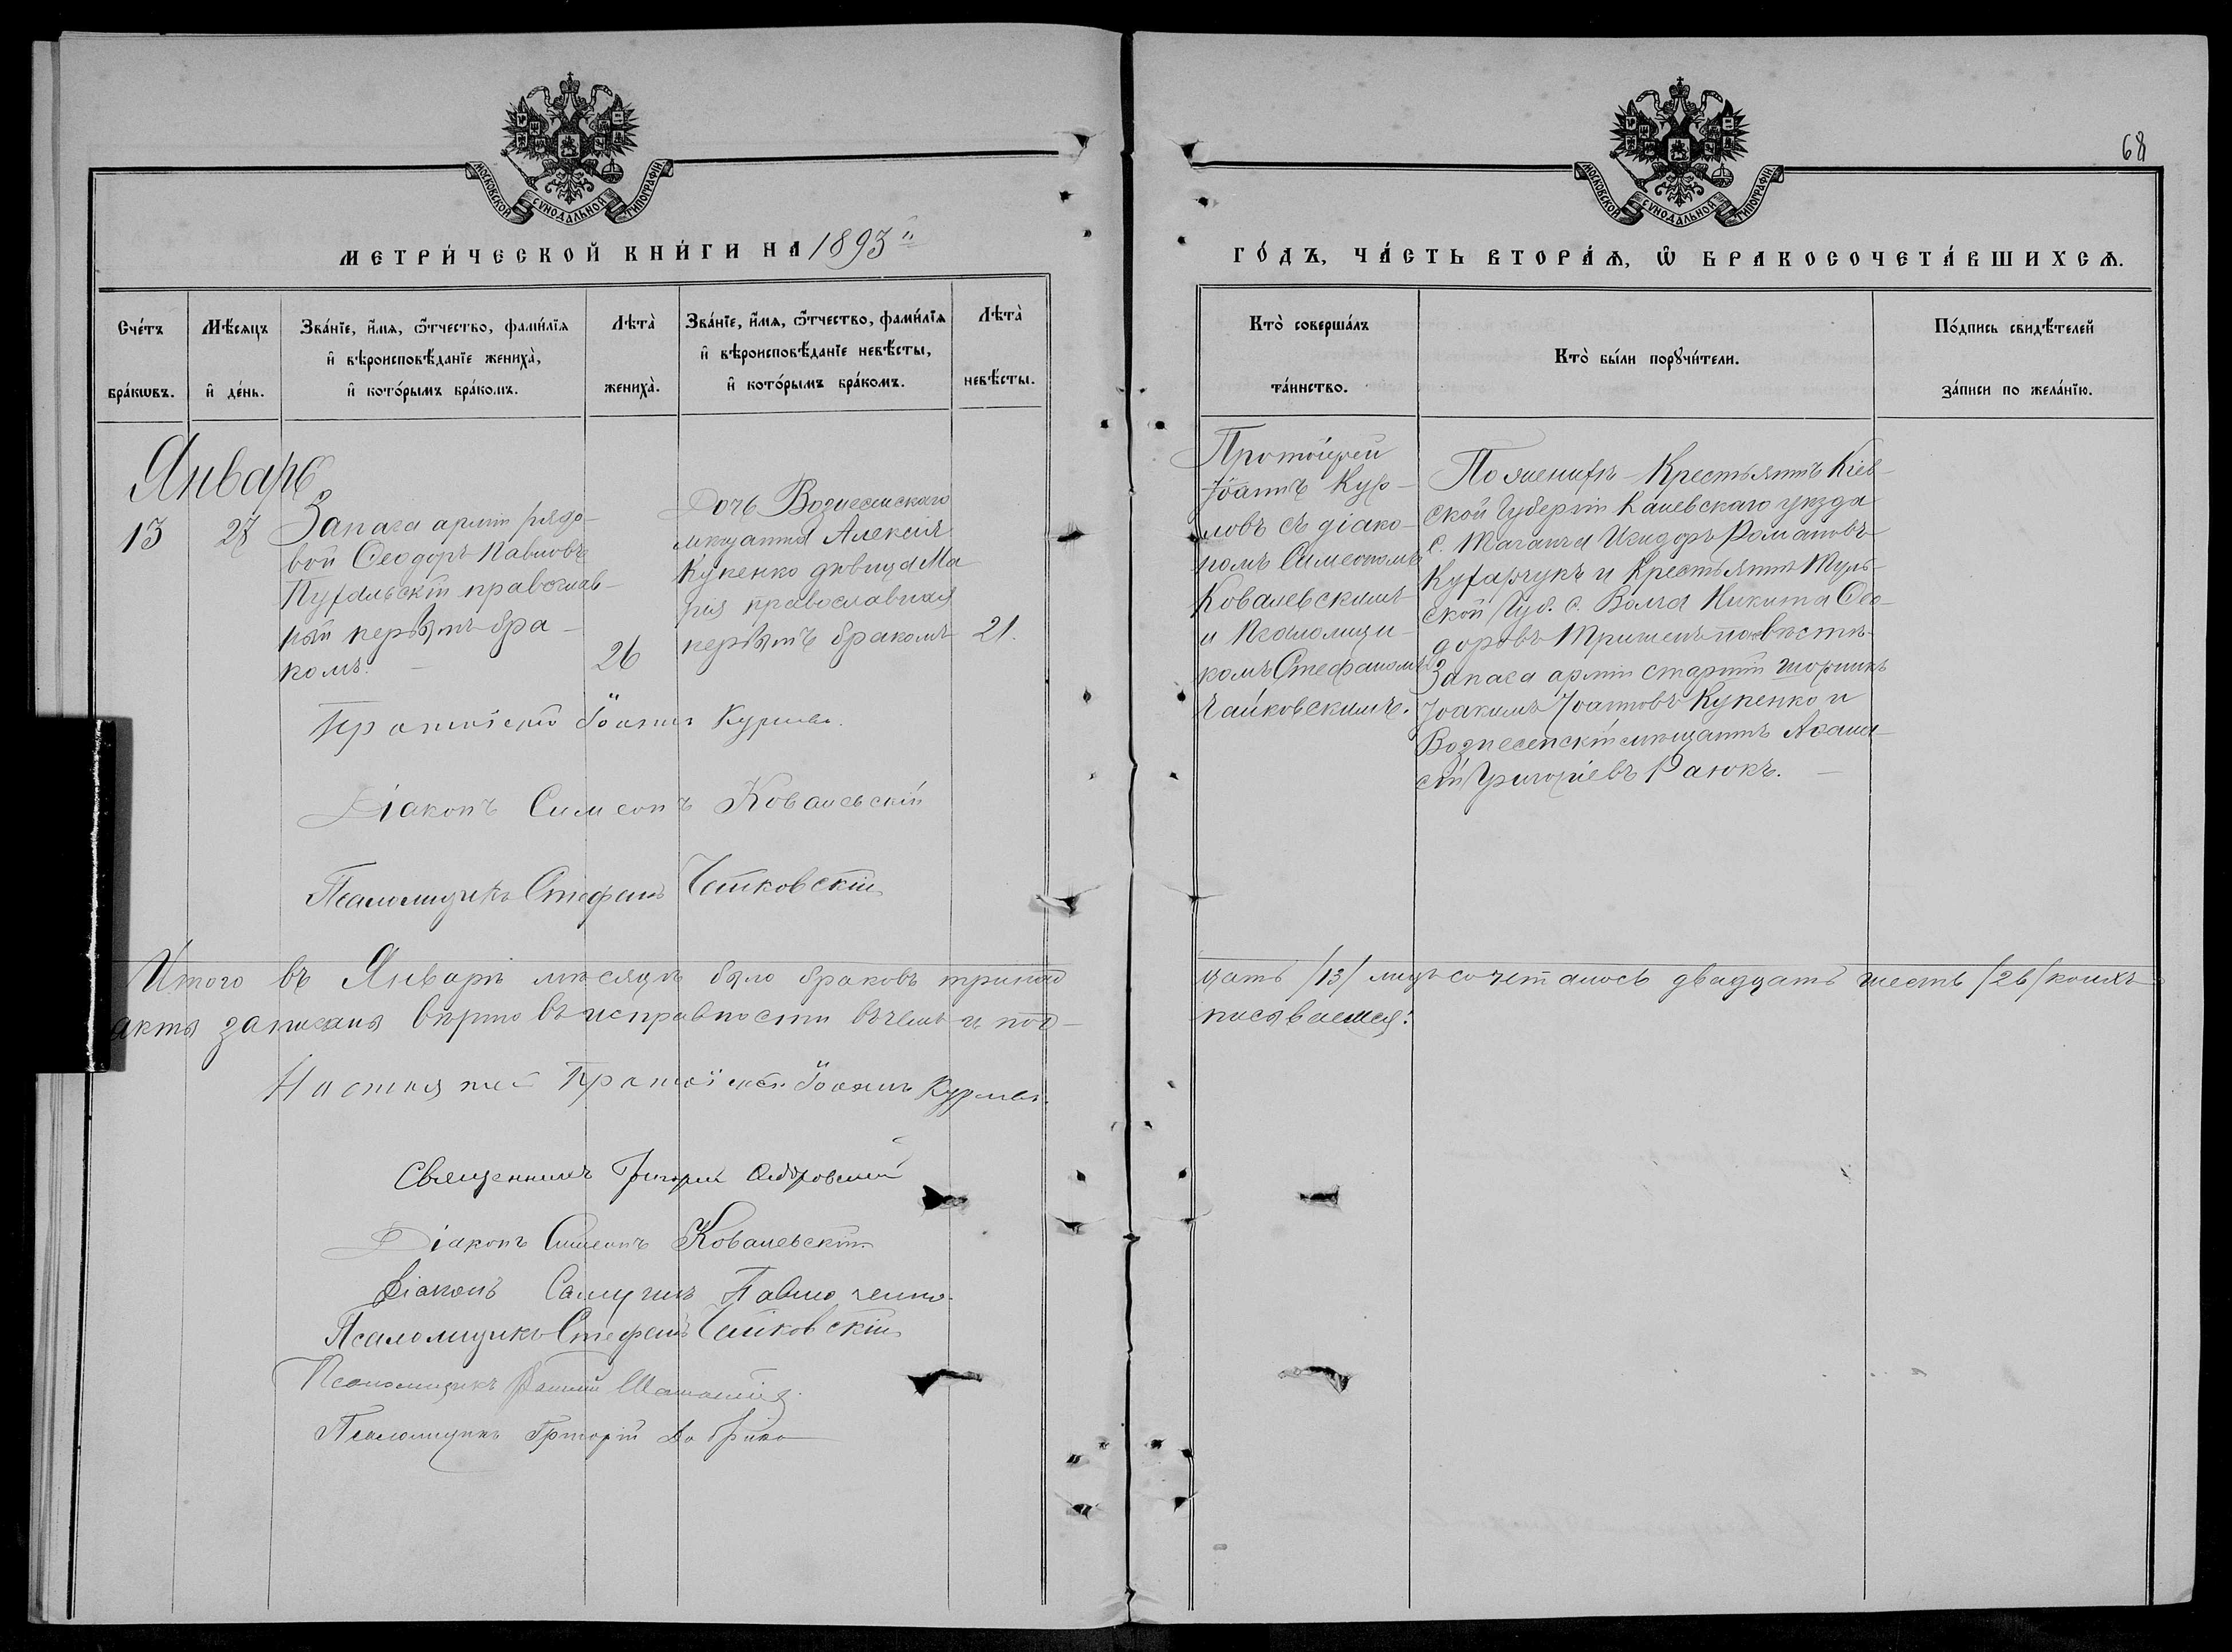 68
МОСКОВСКОЙ СѴНОДАЛЬНОЙ ТИПОГРАФІИ
МОСКОВСКОЙ СѴНОДАЛЬНОЙ ТИПОГРАФІИ
МЕТРИ́ЧЕСКОЙ КНИ́ГИ НА 1893й
ГО́ДЪ, ЧА́СТЬ ВТОРА́Ѧ, Ѡ҆ БРАКОСОЧЕТА́ВШИХСѦ.
Сче́тъ бра́кѡвъ.
Мѣ́сяцъ и҆ де́нь.
Зва́нїе, и҆́мя, ѻ҆́тчество, фами́лїя
и҆ вѣроисповѣ́данїе жениха̀,
и҆ кото́рымъ бра́комъ.
Лѣта̀ жениха̀.
Зва́нїе, и҆́мя, ѻ҆́тчество, фами́лїя
и҆ вѣроисповѣ́данїе невѣ́сты,
и҆ кото́рымъ бра́комъ.
Лѣта̀ невѣ́сты.
Кто̀ соверша́лъ та́инство.
Кто̀ бы́ли порꙋчи́тели.
По́дпись свидѣ́телей
за́писи по жела́нїю.
Январь
13
28
Запаса арміи рядо-
вой Ѳеодоръ Павловъ
православ-
ный первымъ бра-
комъ.
26
Дочь Вознесенскаго
мѣщанина Алексія
Кукенко дѣвица Ма
рія православная
первымъ бракомъ
21.
Протоіерей
Іоаннъ Кур-
ловъ съ діако-
номъ Симеономъ
Ковалевскимъ
и Псаломщи-
комъ Стефаномъ
Чайковскимъ.
По женихѣ - Крестьянинъ Кіев-
ской Губерніи Каневскаго уѣзда
с. Таганча Исидоръ Романовъ
Кухарчукъ и Крестьянинъ Туль-
ской Губ. с. Никита Ѳео-
доровъ по невѣстѣ
Запаса арміи старшій
Іоакимъ Іоанновъ Кукенко и
Вознесенскій мѣщанинъ Аѳана-
сій Григоріевъ Раюкъ.
Протоіерей Іоаннъ Курловъ.
Діаконъ Симеонъ Ковалевскій
Псаломщикъ Стефанъ Чайковскій
Итого въ Январѣ мѣсяцѣ было браковъ тринад
цать /13/ лицъ сочеталось двадцать шесть /26/ коихъ
акты записаны вѣрно въ исправности въ чемъ и под-
писываемся:
Настоятель Протоіерей Іоаннъ Курловъ.
Священникъ Григорій
Діаконъ Симеонъ Ковалевскій
Діаконъ Самуилъ Павлюченко.
Псаломщикъ Стефанъ Чайковскій
Псаломщикъ
Псаломщикъ Григорій